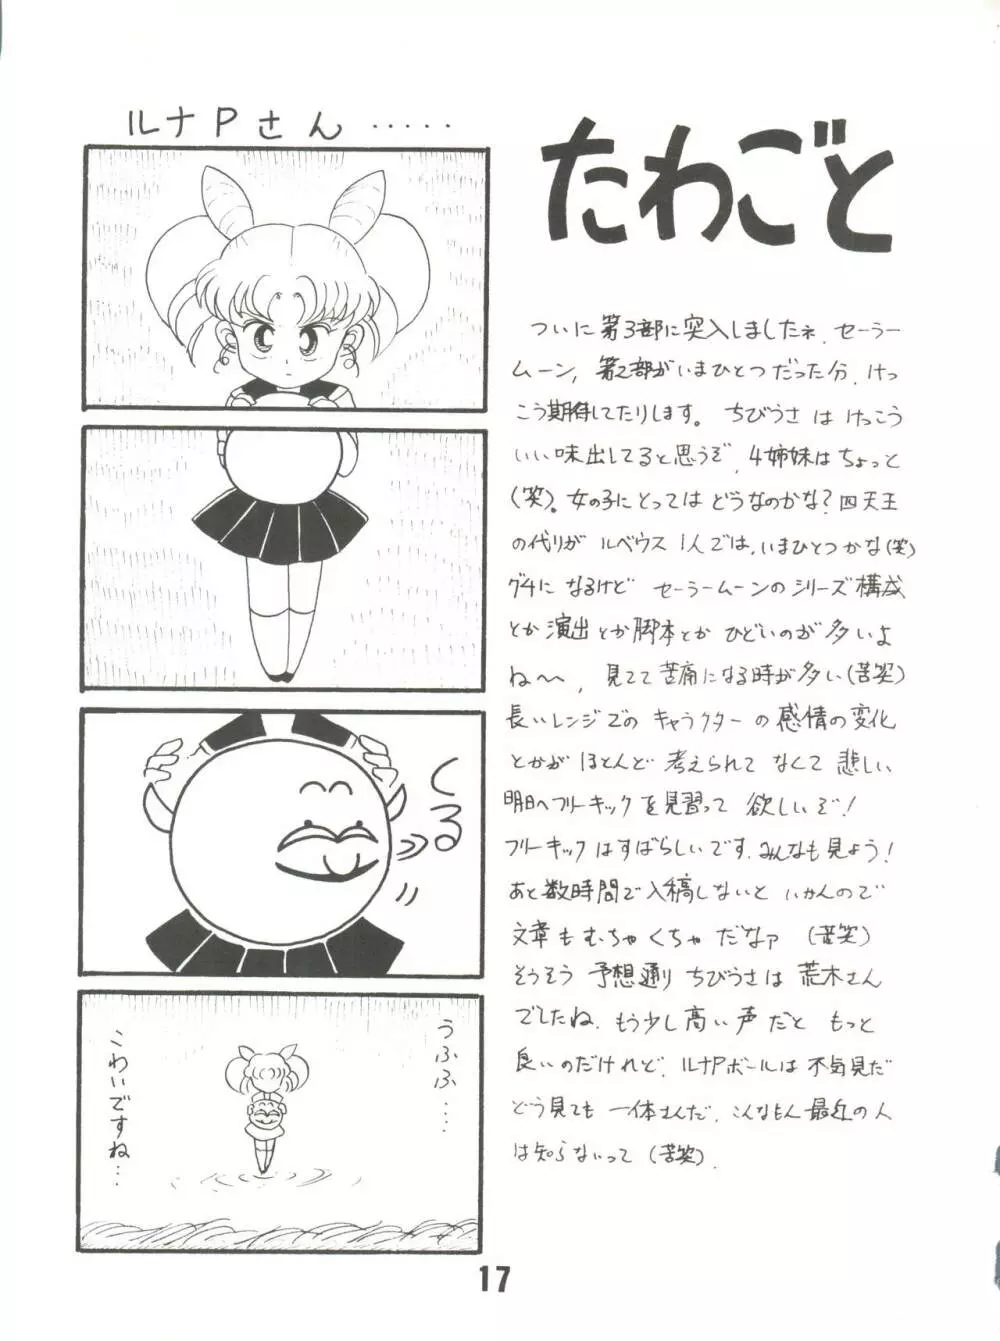 ルナPさん・・・・・
くる
うふふ・・・・・
こわいですね・・・
たわごと
ついに第3部に突入しましたネ、セーラー
ムーン，第2部がいまひとつだった分、けっ
こう期待してたりします。ちびうさはけっこう
いい味出してると思うぞ、4姉妹はちょっと
(笑)。女の子にとってはどうなのかな?四天王
の代りがルベウス1人では、いまひとつかな(笑)
グチになるけどセーラームーンのシリーズ構成
とか演出とか脚本とかひどいのが多いよ
ね〜、見てて苦痛になる時が多い(苦笑)
長いレンジでのキャラクターの感情の変化
とかがほとんど考えられてなくて悲しい
明日へフリーキックを見習って欲しいぞ!
フリーキックはすばらしいです、みんなも見よう!
あと数時間で入稿しないといかんので
文章もむちゃくちゃだなァ(苦笑)
そうそう予想通りちびうさは荒木さん
でしたね、もう少し高い声だともっと
良いのだけれど、ルナPボールは不気見だ
どう見ても一体さんだ、こんなもん最近の人
は知らないって(苦笑)、
17